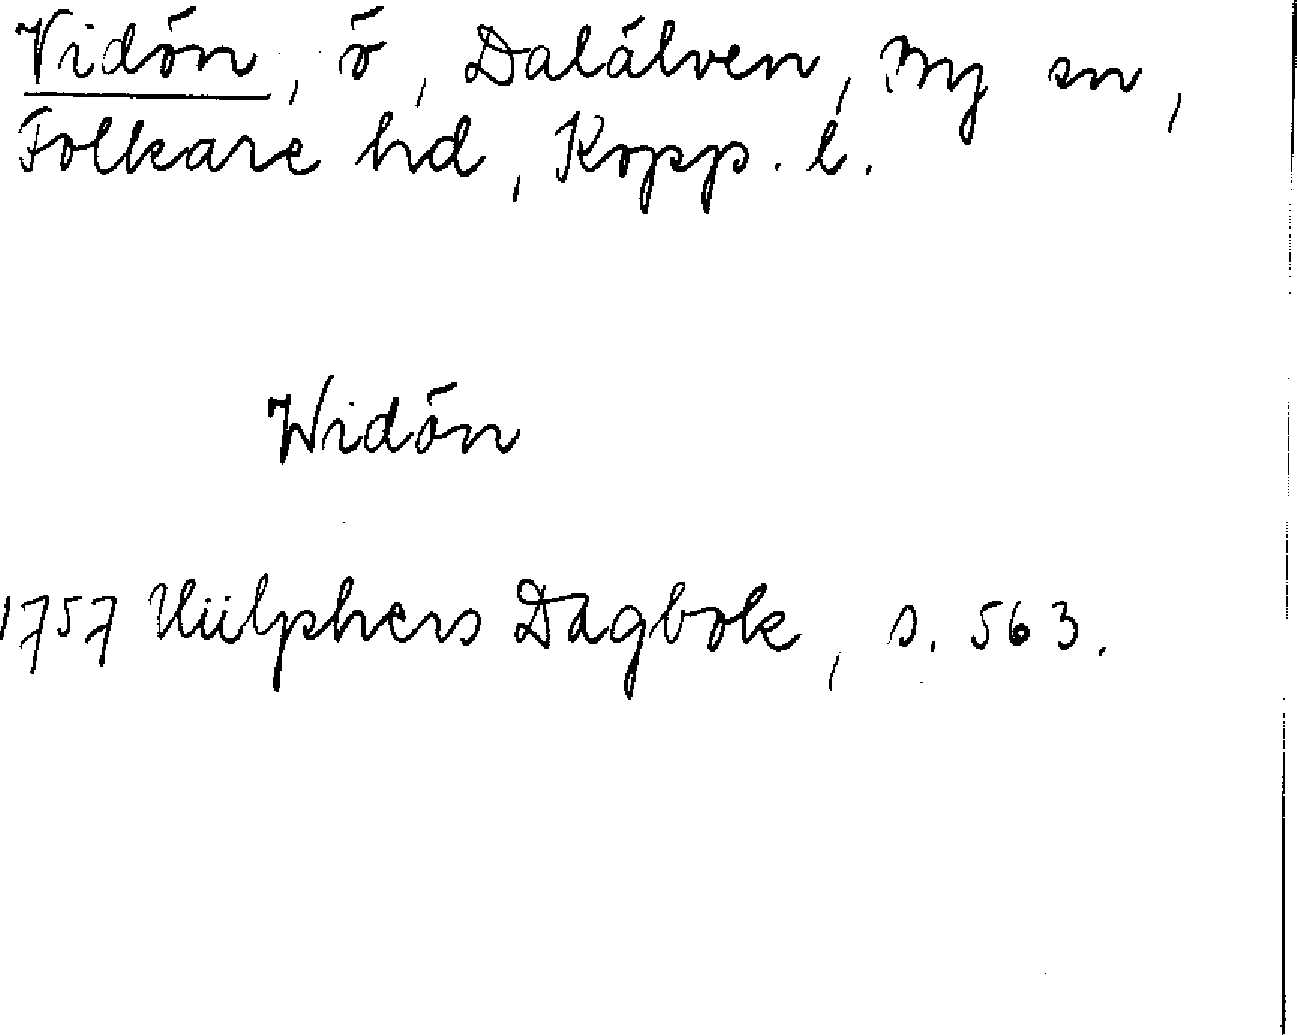 Vidön, ö, Dalälven, By sn,
Folkare hd, Kopp. l.
Widön
1757 Hülphers Dagbok, s. 563.